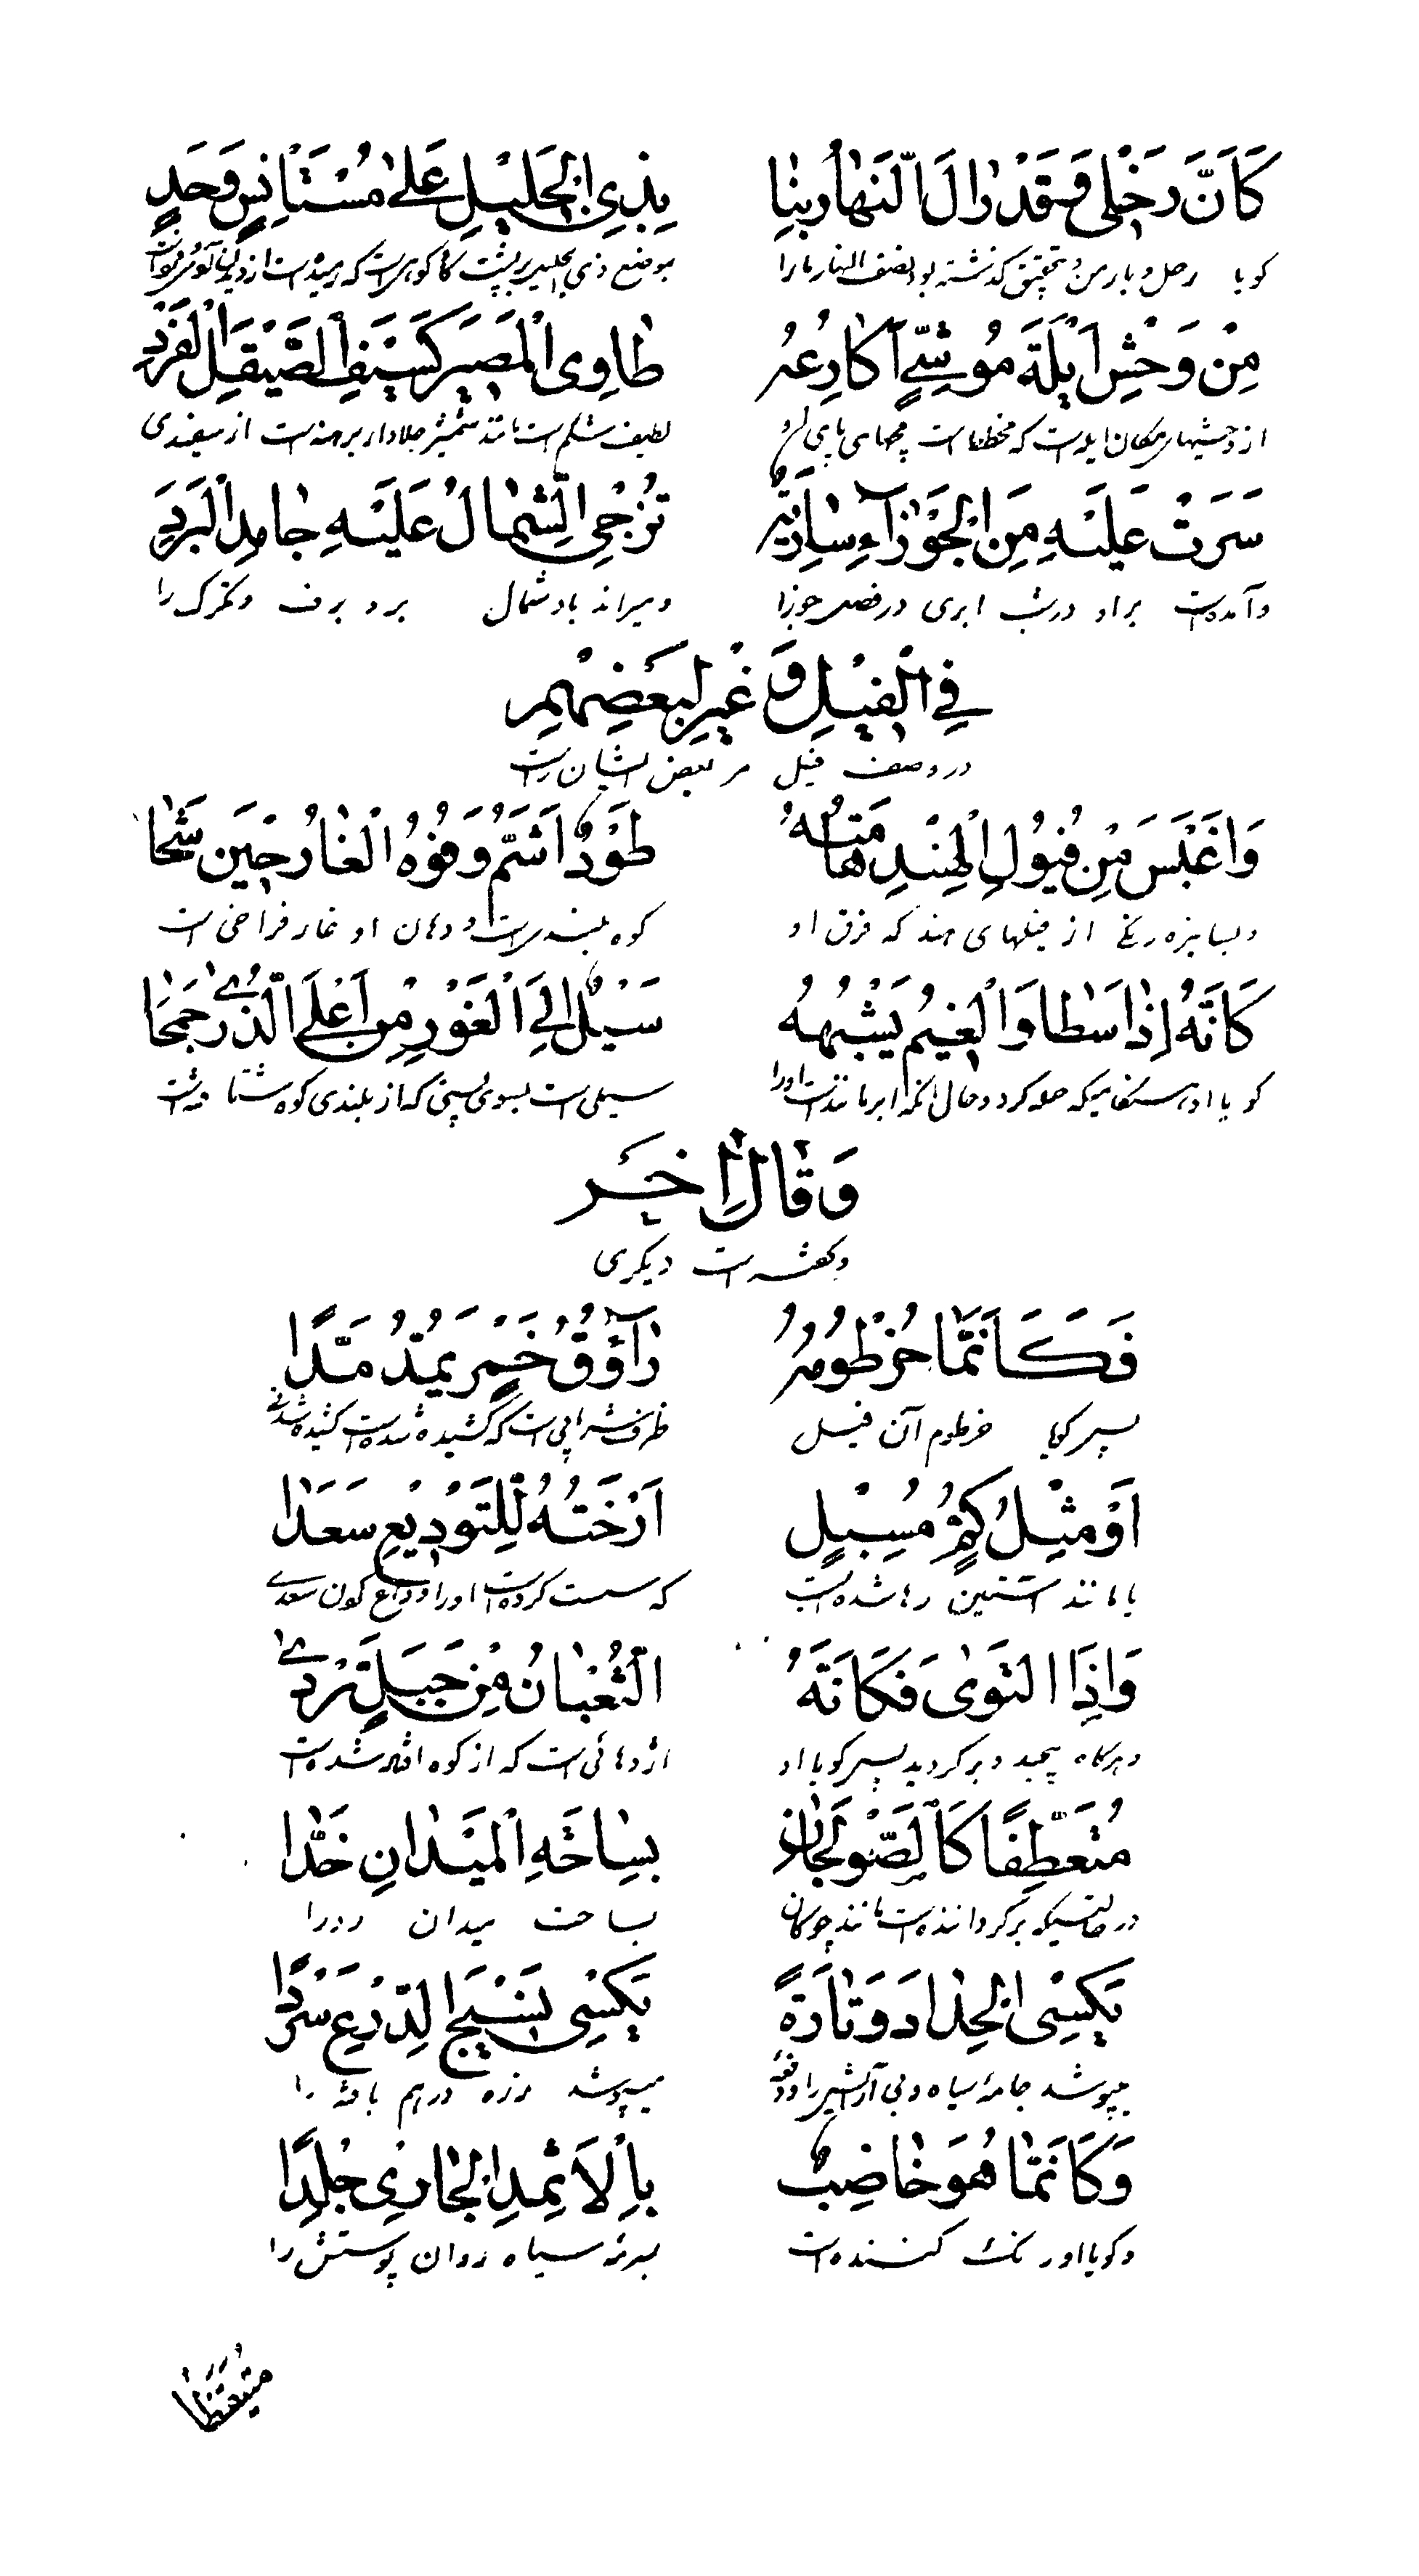 كَاَنَّ رَحْلِى وَقَدْ زٰالَ النَّهٰارُ بِنٰا بِذِى الْجَلِيْلِ عَلىٰ مُسْتَاْنِسٍ وَحَدٍ
كويا رحل و بار من و بتحقيق كذشته بود نصف النهار ما را بموضع ذى الجليل بر پشت
مِنْ وَحْشِ اَيْلَةَ مُوْشِىٍّ اَكٰارِعُهُ طٰاوِى الْمَصِيْرِ كَسَيْفِ الصَّيْقَلِ الْفَرَدِ
از وحشيهاى مكان ايله است كه مخططست پاچهاى پاى او لطيف شكم است مانند شمشير جلادار برهنه است از سفيدى
سَرَتْ عَلَيْهِ مِنَ الْجَوْزٰآءِ سٰارِيَةٌ تُزْجِى الشِّمٰالُ عَلَيْهِ جٰامِدَ الْبَرَدِ
و آمده است بر او در شب ابرى در فصل جوزا و ميراند باد شمال بر او برف و تكرك را
فِى الْفِيْلِ وَ غَيْرِ لِبَعْضِهِمْ
در وصف فيل مر بعض ايشان راست
وَاَغْبَسَ مِنْ فُيُوْلِ الْهِنْدِ هٰامَتُهُ طَوْدٌ اَشَمُّ وَفُوْهُ الْغٰارُ حِيْنَ شَحٰا
و بسا تيزه رنكى از فيلهاى هند كه فرق او كوه بلندى است و دهان او غار فراخى است
كَاَنَّهُ اِذٰا سَطٰا وَالْغَيْمُ يُشْبِهُهُ سَيْلٌ اِلَى الْغَوْرِ مِنْ اَعْلَى الذُّرىٰ جَمَحٰا
كويا او هنكاميكه حمله كرد و حال آنكه ابر مانند است او را سيلى است بسوى پستى كه از بلندى كوه شتافته است
وَ قٰالَ اٰخَرُ
و كفته است ديكرى
فَكَاَنَّمٰا خُرْطُوْمُهُ رٰآوُوْقُ خَمْرٍ يُمَدُّ مَدًّا
پس كويا خرطوم آن فيل ظرف شرابى است كه كشيده شده است كشيده شدنى
اَوْ مِثْلُ كُمٍّ مُسْبِلٍ اَرْخَتْهُ لِلتَّوْدِيْعِ سَعْدٰا
يا مانند آستين رها شده است كه سست كرده است او را وداع كون سعدى
وَاِذَا الْتَوىٰ فَكَاَنَّهُ الثُّعْبٰانُ مِنْ جَبَلٍ تَرَدّىٰ
و هركاه پيچيد و بر كرديد پس كويا او اژدهائى است كه از كوه افتاده شده است
مُتَعَطِّفًا كَالصَّوْلَجٰانِ بِسٰاحَةِ الْمَيْدٰانِ خَدّٰا
در حالتيكه بر كرداننده است مانند چوكان بساحت ميدان رو را
يَكْسِى الْحِدٰادَ وَ تٰارَةً يَكْسِى بِنَسْجِ الدِّرْعِ سَرْدًا
ميپوشد جامهٔ سياه ميپوشد زره درهم بافته را
وَكَاَنَّمٰا هُوَ خٰاضِبٌ بِالْاَثْمِدِ الْجٰارِىْ جِلْدًا
و كويا او رنك كننده است بسرمهٔ سياه روان پوستش را
مُتَيَقِّظًا